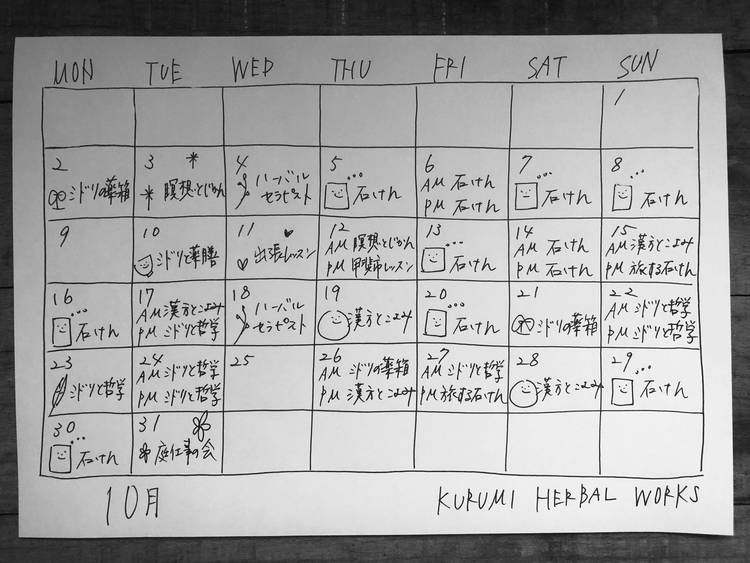 MON TUE WED THU FRI SAT SUN
1
2 ミドリの薬箱
3 瞑想とじかん
4 ハーバル
セラピスト
5 石けん
6
AM 石けん
PM 石けん
7 石けん
8 石けん
9
10 ミドリと薬膳
11 出張レッスン
12
AM 瞑想とじかん
PM 甲斐市レッスン
13 石けん
14
AM 石けん
PM 石けん
15
AM 漢方とこよみ
PM 旅する石けん
16 石けん
17
AM 漢方とこよみ
PM ミドリと哲学
18 ハーバル
セラピスト
19 漢方とこよみ
20 石けん
21 ミドリの薬箱
22
AM ミドリと哲学
PM ミドリと哲学
23 ミドリと哲学
24
AM ミドリと哲学
PM ミドリと哲学
25
26
AM ミドリの薬箱
PM 漢方とこよみ
27
AM ミドリと哲学
PM 旅する石けん
28 漢方とこよみ
29 石けん
30 石けん
31 庭仕事の会
10月 KURUMI HERBAL WORKS